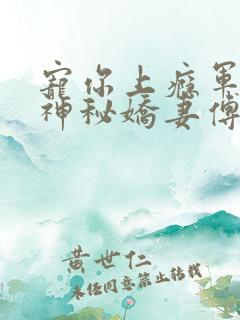 寵你上癮軍
神秘嬌妻傅
黃世仁
未經同意禁止轉載